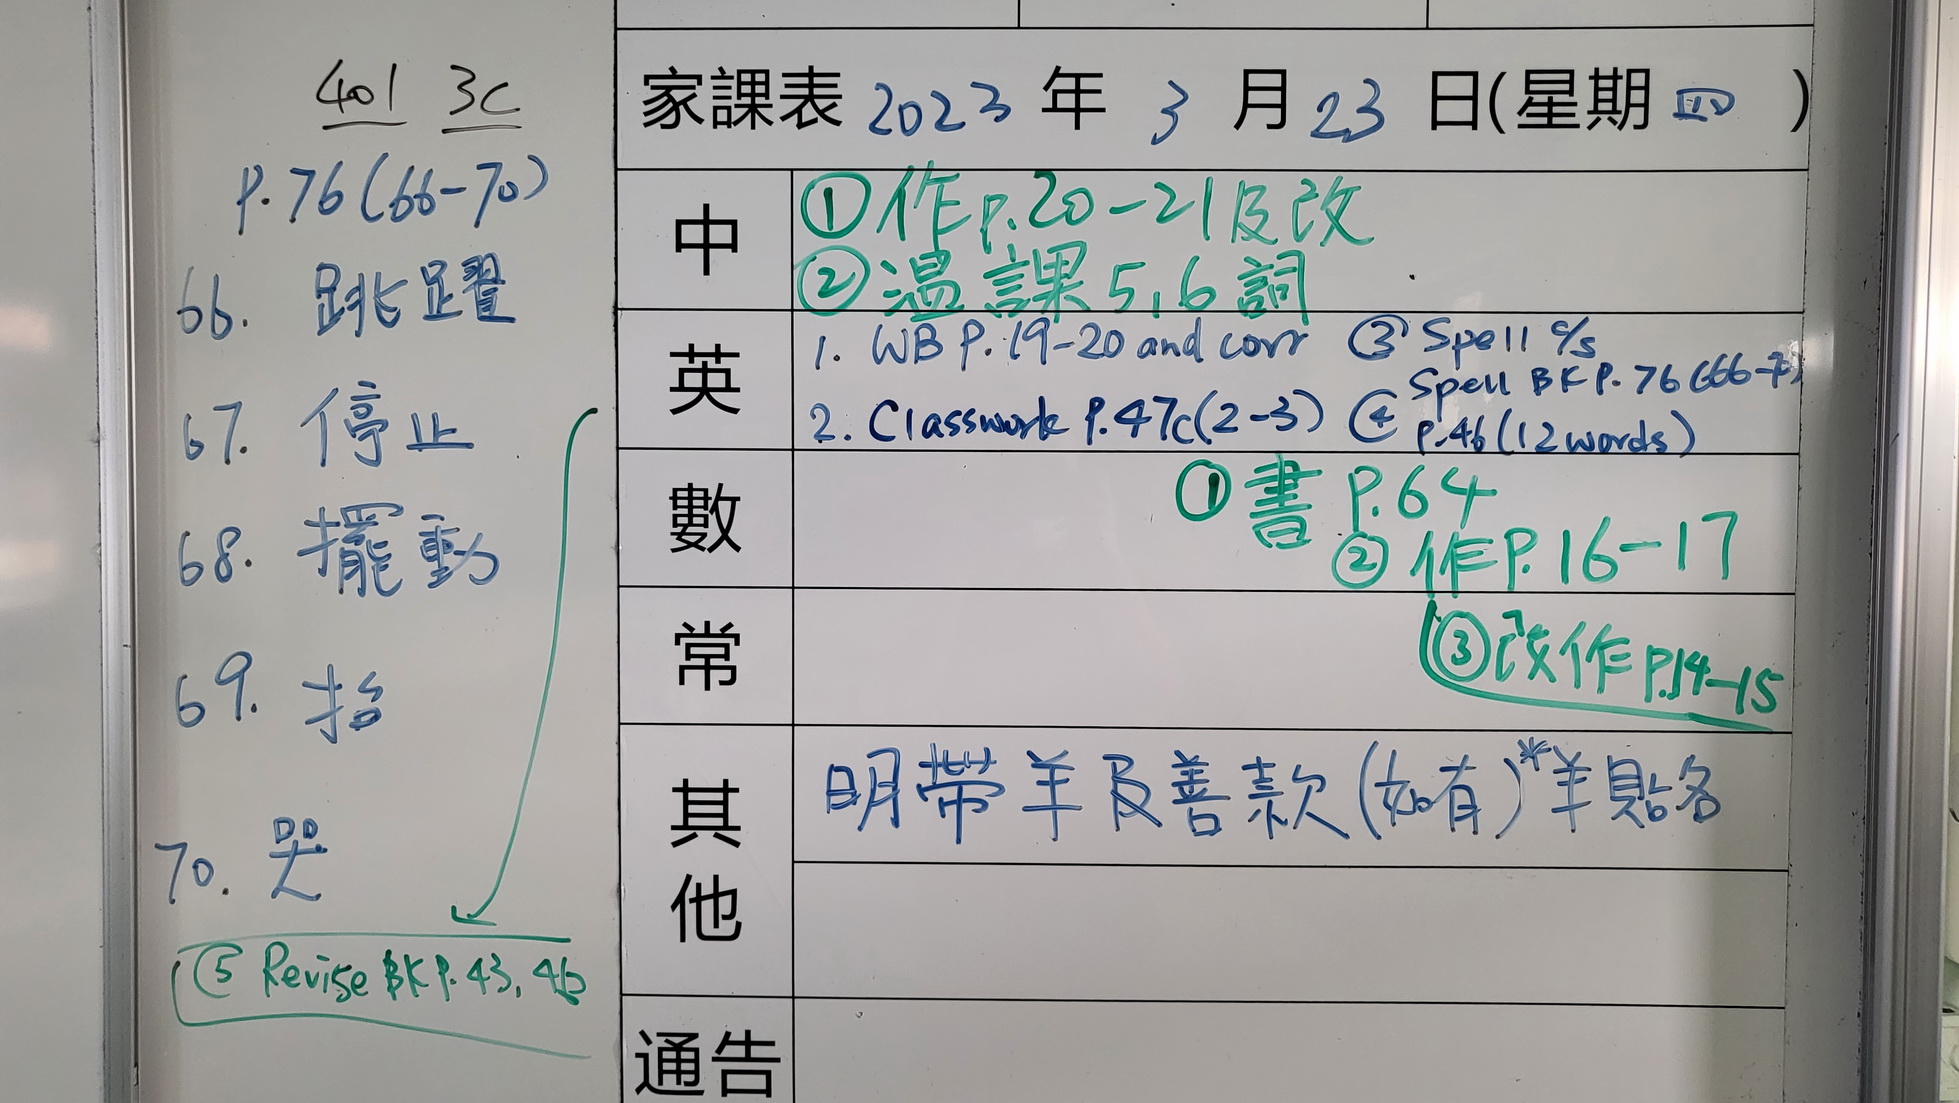 401 3C
P.76(66-70)
66. 跳躍
67. 停止
68. 擺動
69. 抬
70. 哭
⑤ Revise BK P.43, 46
家課表 2023 年 3 月 23 日(星期 四 )
中
①作p.20-21及改
②溫課5,6詞
英
1. WB P.19-20 and corr
2. Classwork P.47C(2-3)
③ Spell c/s
④ Spell BK P.76(66-70)
P.46(12words)
數
①書 P.64
②作P.16-17
③改作P.14-15
常
其他
明帶羊及善款(如有)*羊貼名
通告